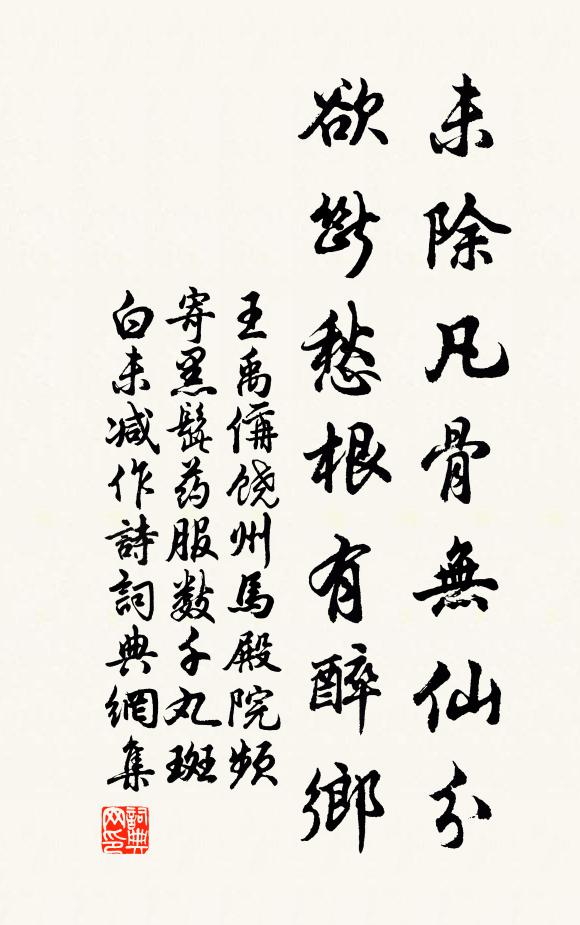 未除凡骨無仙分
欲斷愁根有醉鄉
王禹偁饶州馬殿院頻
寄黑髭药服数千丸斑
白未减作詩詞典網集
詞典网印